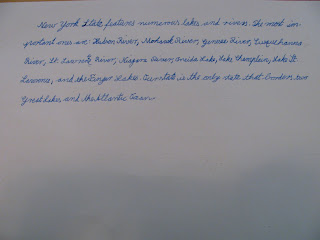 New York State features numerous lakes and rivers. The most im-
portant ones are: Hudson River, Mohawk River, Genesee River, Susquehanna
River, St. Lawrence River, Niagara River, Oneida Lake, Lake Champlain, Lake St.
Lawrence, and the Finger Lakes. Our state is the only state that borders two
Great Lakes and the Atlantic Ocean.